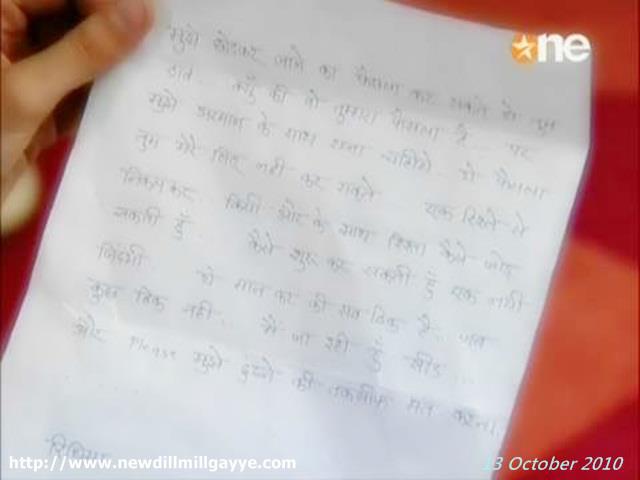 one
मुझे छोडकर जाने का फैसला कर सकते हो तुम
डॉत.. क्यूँ की वो तुम्हारा फैसला है.. पर
मुझे अरमान के साथ रहना चाहिये.. ये फैसला
तुम मेरे लिए नही कर सकते.. एक रिश्ते से
निकलकर.. किसी और के साथ रिश्ता कैसे जोड
सकती हुँ.. कैसे शुरु कर सकती हुँ एक नयी
जिंदगी.. ये मान कर की सब ठिक है.. जब
कुछ ठिक नही.. मैं जा रही हुँ सीड..
और Please मुझे ढुंढने की तकलीफ मत करना.
रिध्दिमा
http://www.newdillmillgayye.com
13 October 2010